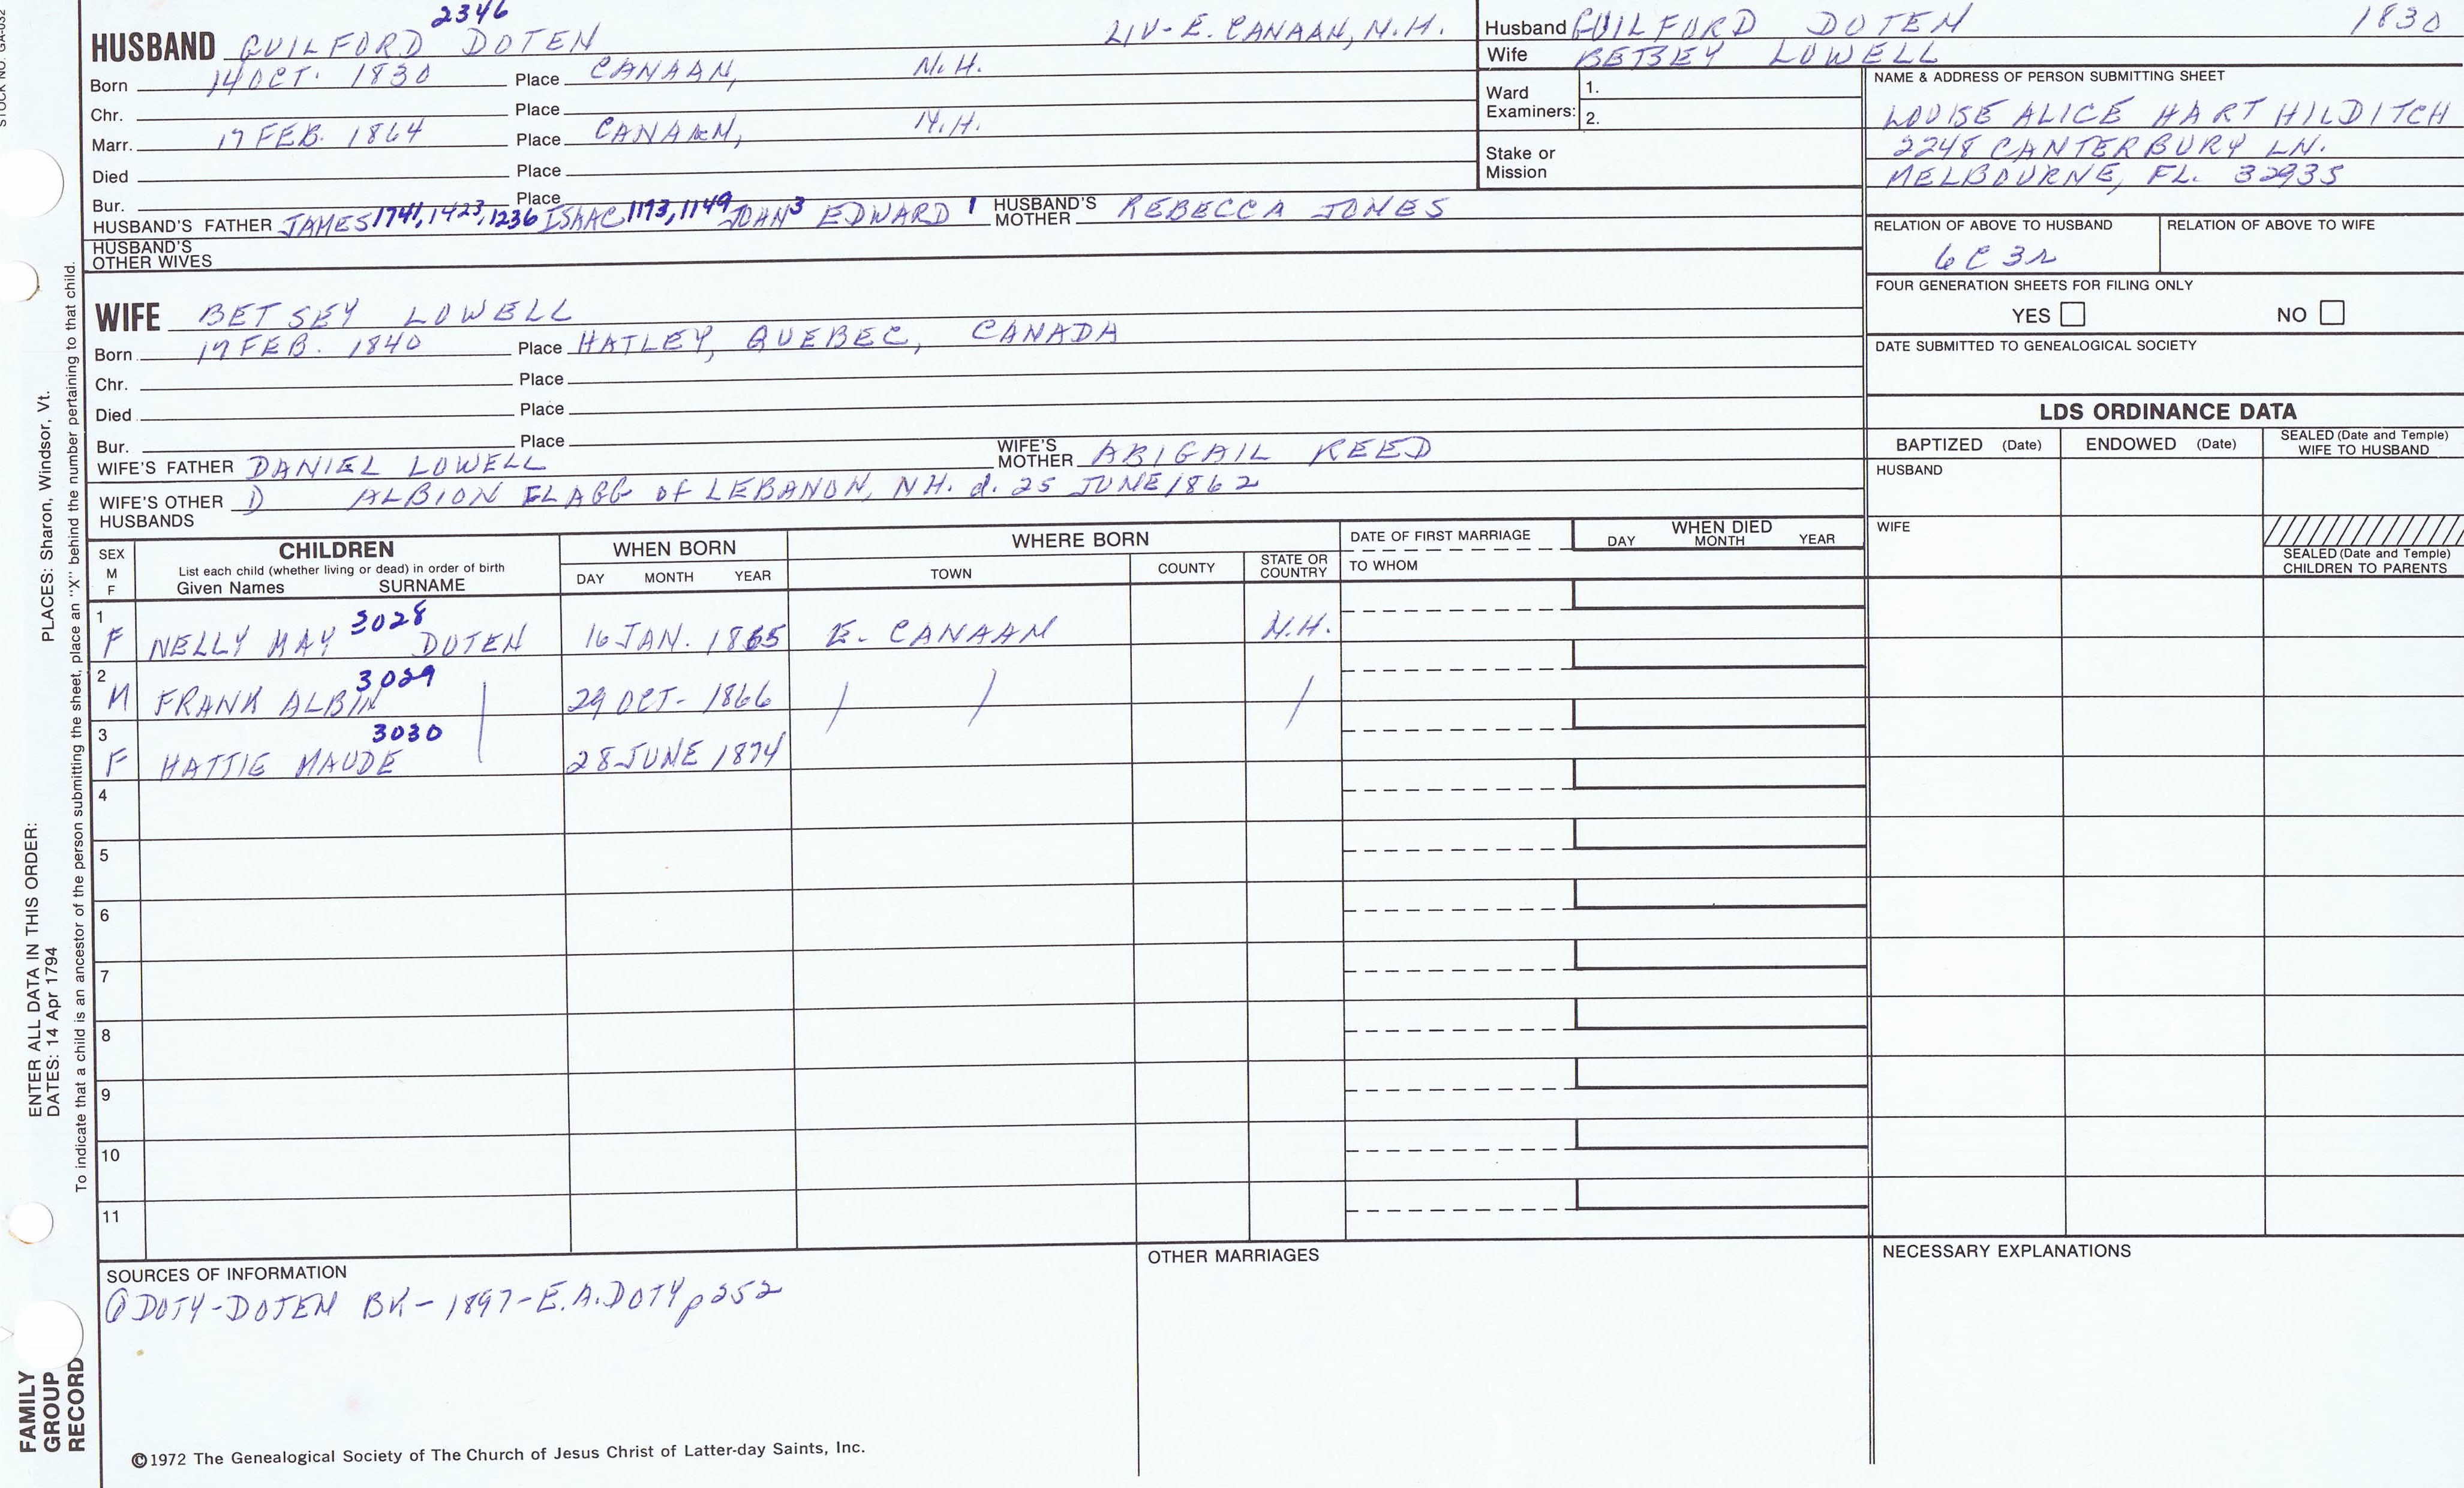 STOCK NO. GA-032
2346
HUSBAND GUILFORD DOTEN LIV- E. CANAAN, N.H.
Born 14 OCT. 1830 Place CANAAN, N.H.
Chr. Place
Marr. 17 FEB. 1864 Place CANAAN, N.H.
Died Place
Bur. Place
HUSBAND'S FATHER JAMES 1741, 1423, 1236 ISAAC 1173, 1149 JOHN 3 EDWARD 1 HUSBAND'S MOTHER REBECCA JONES
HUSBAND'S OTHER WIVES
WIFE BETSEY LOWELL
Born 17 FEB. 1840 Place HATLEY, QUEBEC, CANADA
Chr. Place
Died Place
Bur. Place
WIFE'S FATHER DANIEL LOWELL WIFE'S MOTHER ABIGAIL REED
WIFE'S OTHER HUSBANDS D ALBION FLAGG OF LEBANON, NH. d. 25 JUNE 1862
Husband GUILFORD DOTEN 1830
Wife BETSEY LOWELL
Ward Examiners: 1.
2.
Stake or Mission
NAME & ADDRESS OF PERSON SUBMITTING SHEET
LOUISE ALICE HART HILDITCH
2248 CANTERBURY LN.
MELBOURNE, FL. 32935
RELATION OF ABOVE TO HUSBAND RELATION OF ABOVE TO WIFE
6C 3R
FOUR GENERATION SHEETS FOR FILING ONLY
YES NO
DATE SUBMITTED TO GENEALOGICAL SOCIETY
LDS ORDINANCE DATA
BAPTIZED (Date) ENDOWED (Date) SEALED (Date and Temple) WIFE TO HUSBAND
HUSBAND
WIFE
SEALED (Date and Temple) CHILDREN TO PARENTS
SEX M F CHILDREN WHEN BORN WHERE BORN DATE OF FIRST MARRIAGE WHEN DIED
List each child (whether living or dead) in order of birth
Given Names SURNAME DAY MONTH YEAR TOWN COUNTY STATE OR COUNTRY TO WHOM DAY MONTH YEAR
1 F NELLY MAY 3028 DOTEN 16 JAN. 1865 E. CANAAN N.H.
2 M FRANK ALBIN 3029 29 OCT- 1866
3 F HATTIE MAUDE 3030 28 JUNE 1874
4
5
6
7
8
9
10
11
SOURCES OF INFORMATION
① DOTY-DOTEN BK-1897-E.A.DOTY p252
OTHER MARRIAGES
NECESSARY EXPLANATIONS
©1972 The Genealogical Society of The Church of Jesus Christ of Latter-day Saints, Inc.
FAMILY GROUP RECORD
ENTER ALL DATA IN THIS ORDER:
DATES: 14 Apr 1794
PLACES: Sharon, Windsor, Vt.
To indicate that a child is an ancestor of the person submitting the sheet, place an "X" behind the number pertaining to that child.